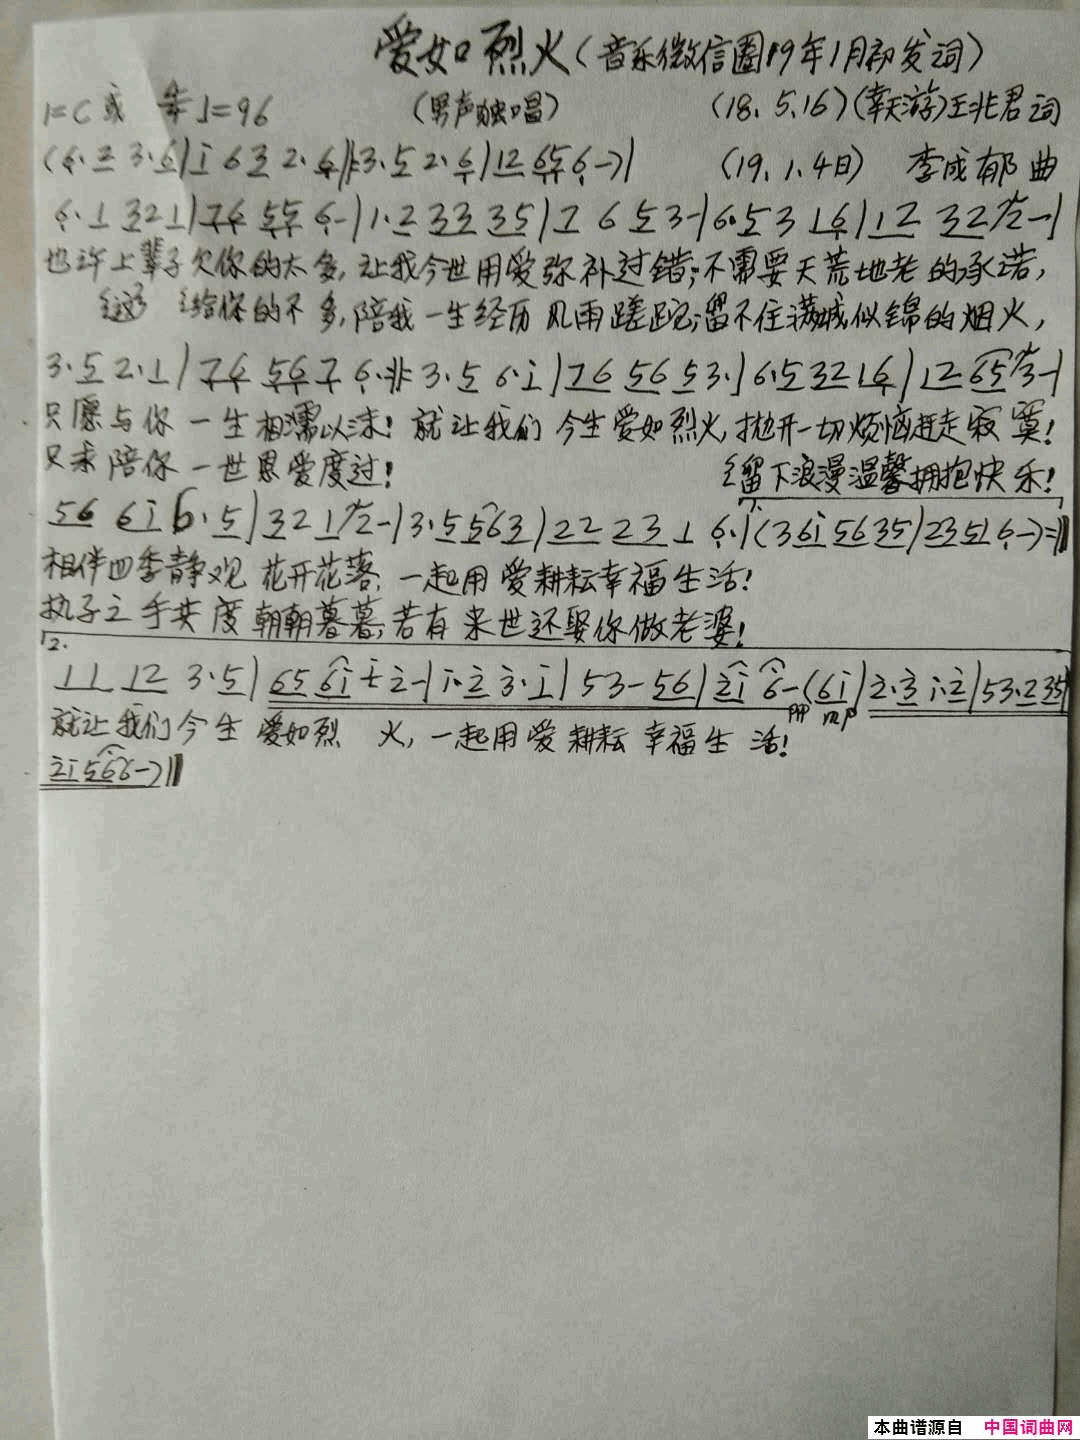 爱如烈火(音乐微信圈19年1月初发词)
1=C或 ♩=96 (男声独唱) (18.5.16)(幸天游)王兆君词
(6·2 3·6|i 6 3 2·6|3·5 2·6|12 65 6-)| (19.1.4日) 李成郁 曲
6·1 321|76 55 6-|1·2 33 35|7 6 5 3-|6·5 3 16|12 32 2-|
也许上辈子欠你的太多,让我今世用爱弥补过错;不需要天荒地老的承诺,
这 给你的不多,陪我一生经历风雨蹉跎;留不住满城似锦的烟火,
3·5 2·1|76 56 7 6·|3·5 6·i|76 56 53·|6·5 32 16|12 65 3-|
只愿与你一生相濡以沫!就让我们今生爱如烈火,抛开一切烦恼赶走寂寞!
只求陪你一世恩爱度过! 留下浪漫温馨拥抱快乐!
56 6i 6·5|32 1 2-|3·5 563|22 23 1 6·|(36i 5635|2351 6-)=||
相伴四季静观花开花落,一起用爱耕耘幸福生活!
执子之手共度朝朝暮暮,若有来世还娶你做老婆!
2.
11 12 3·5|65 6i 2-|i·2 3·i|53-56|2i 6-(6i|2·3 i·2|53·235|
pp mp
就让我们今生爱如烈火,一起用爱耕耘幸福生活!
2i 566-)||
本曲谱源自 中国词曲网